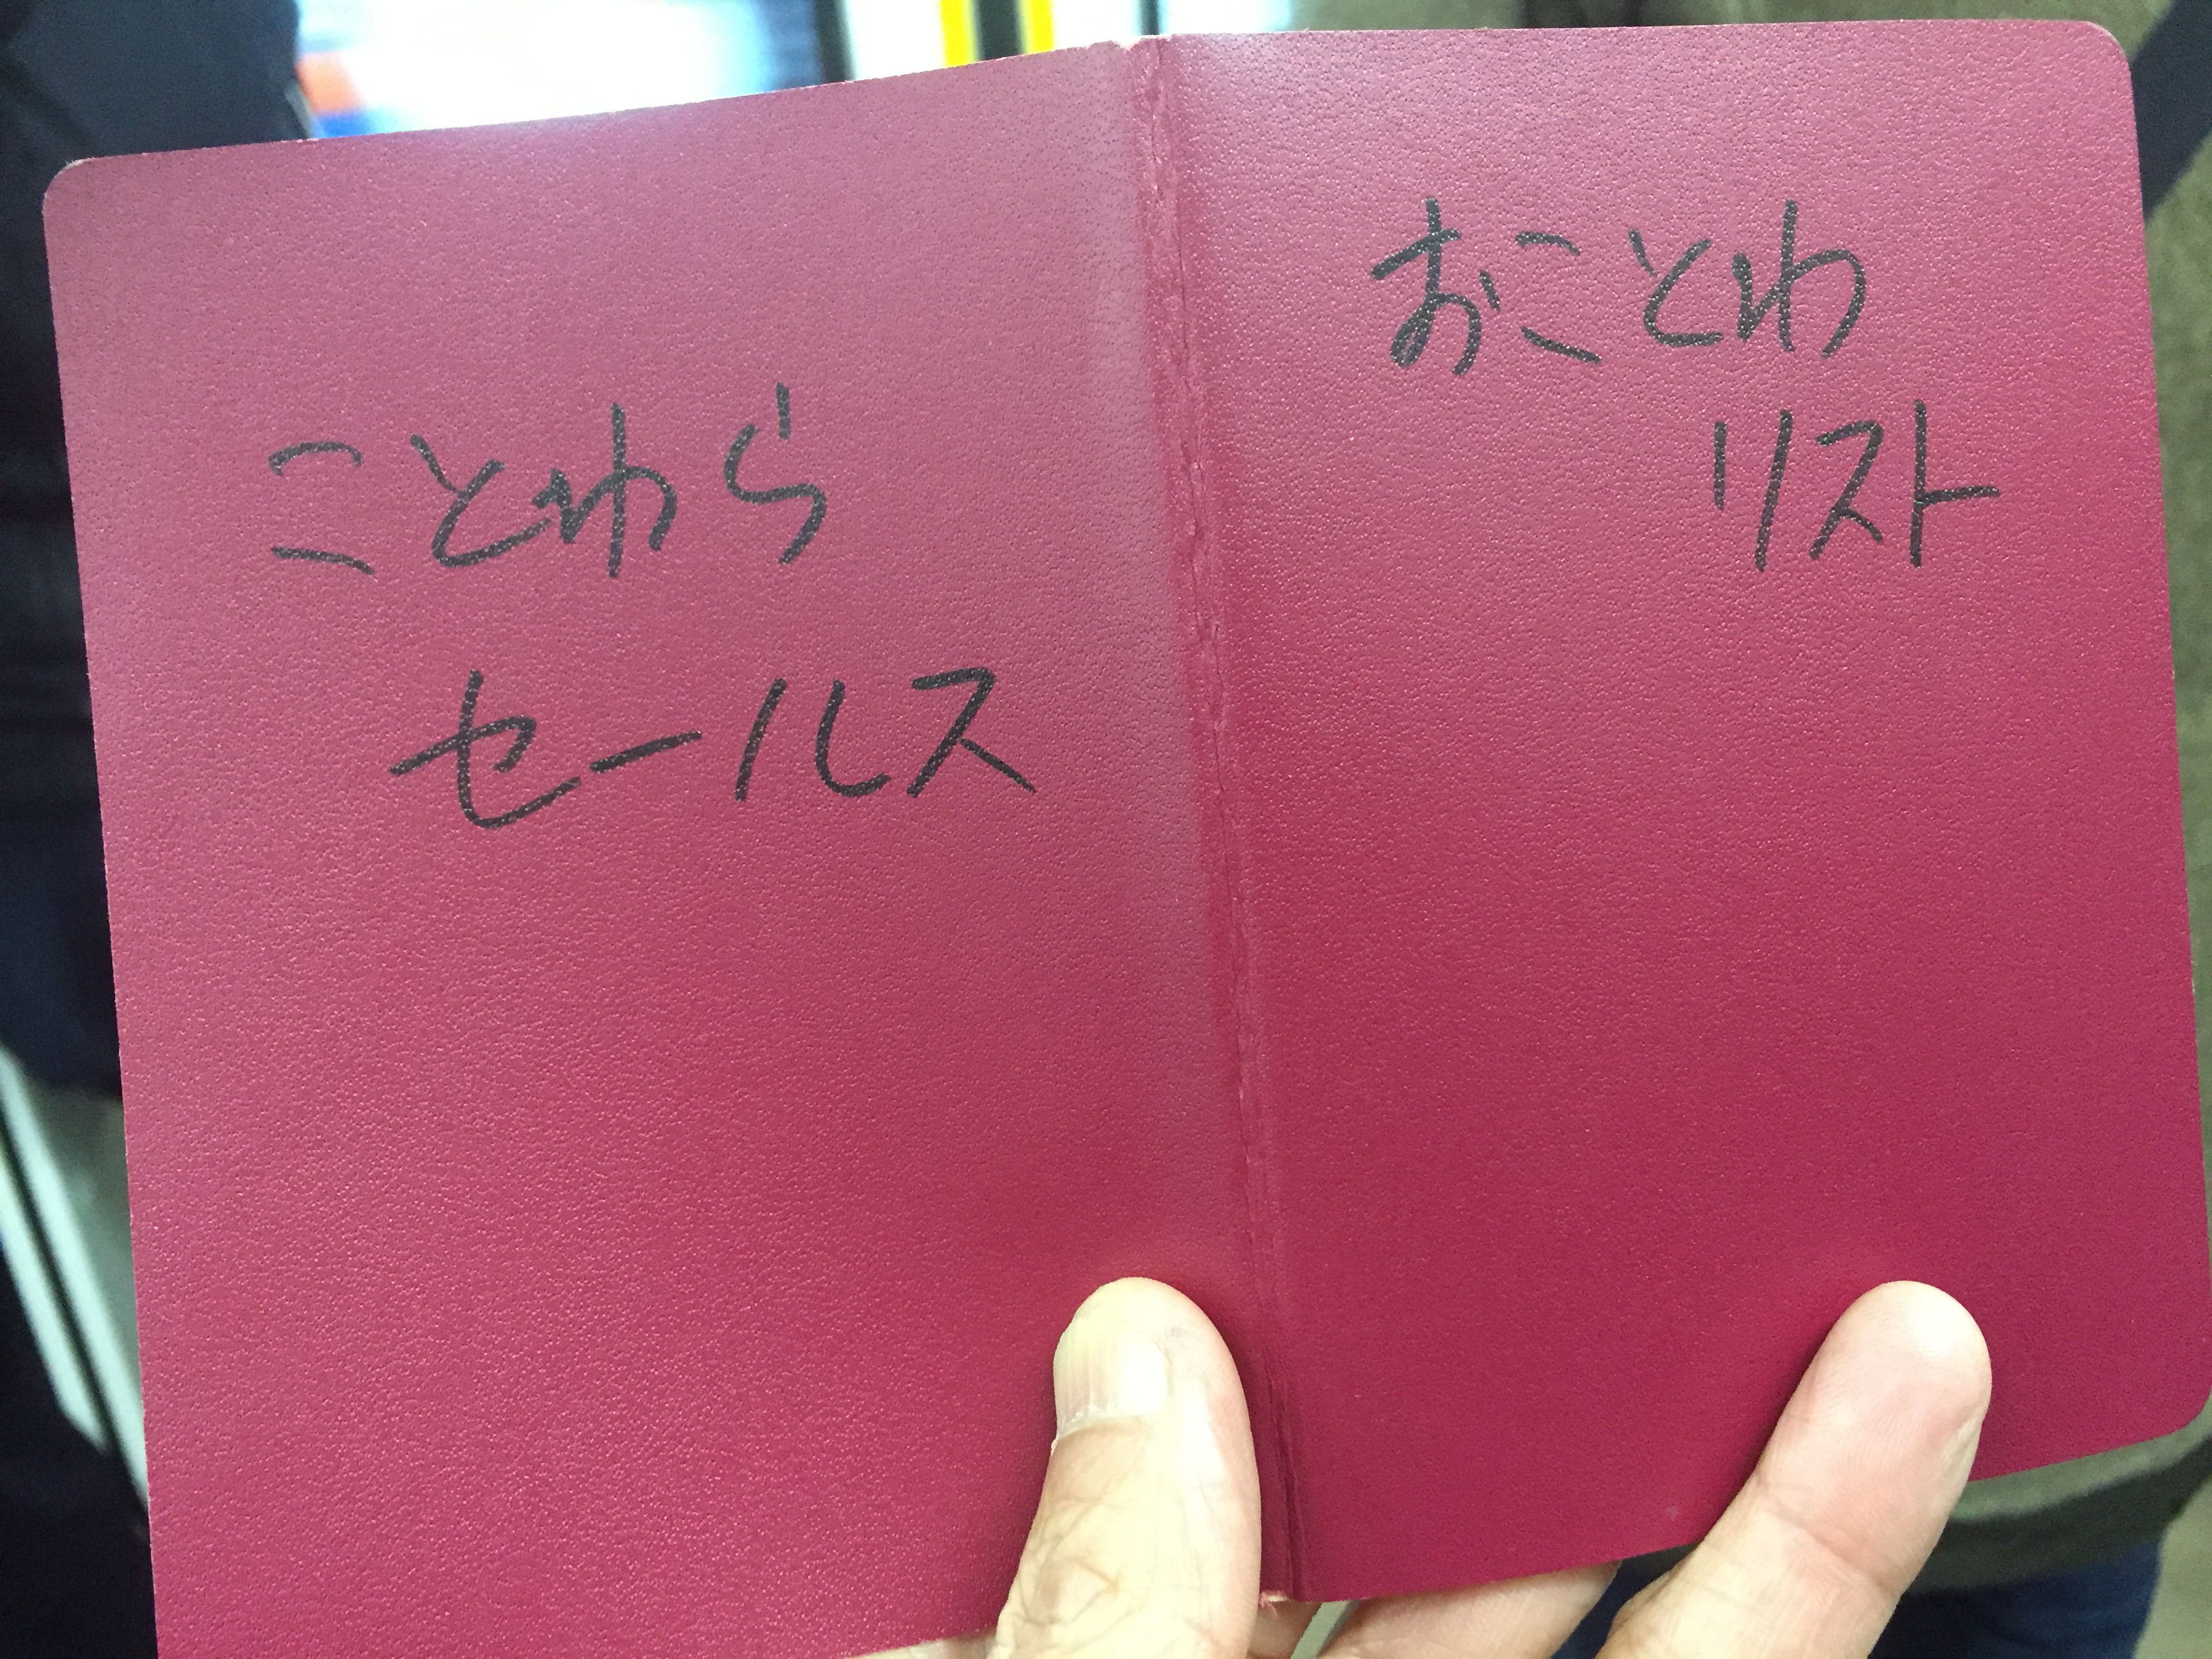 ことわら
セールス
おことわ
リスト